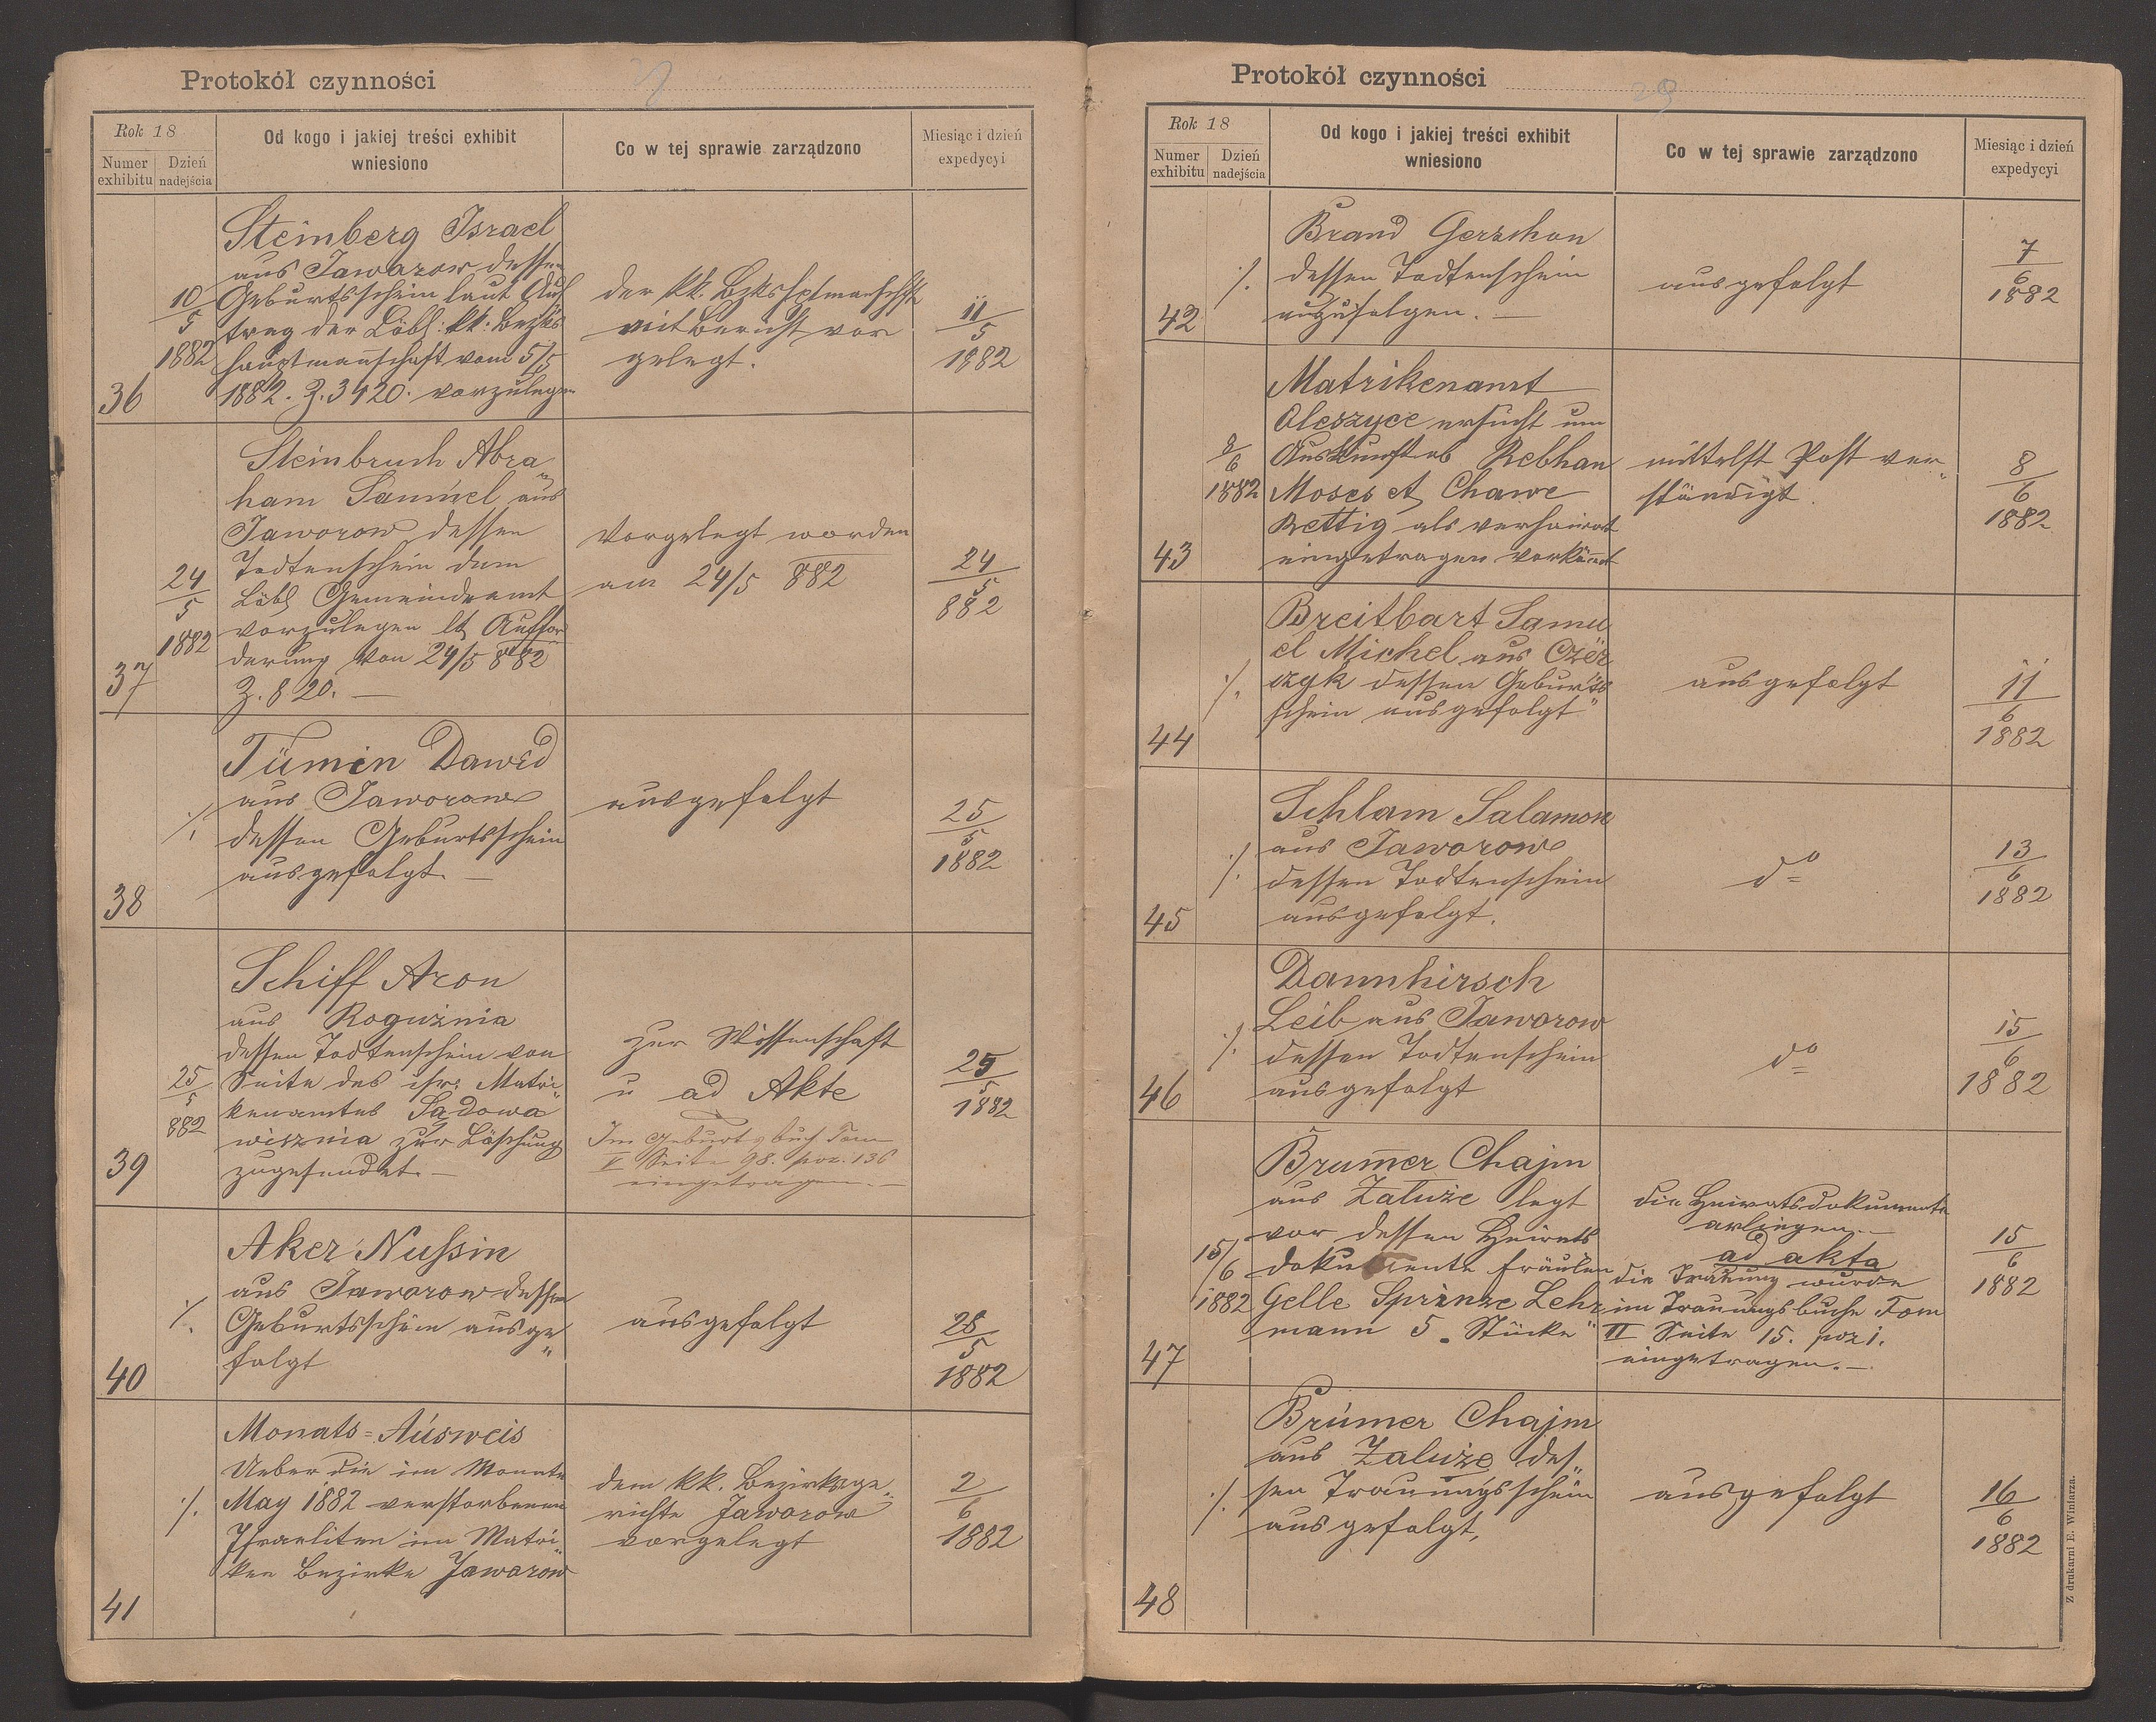 Protokół czynności
Rok 18
Numer exhibitu
Dzień nadejścia
Od kogo i jakiej treści exhibit
wniesiono
Co w tej sprawie zarządzono
Miesiąc i dzień
expedycyi
36
10/5
1882
Steinberg Israel
aus Jaworow dessen
Geburtsschein laut Auf
trag der Löbl: kk: Bezirks
hauptmannschaft vom 5/5
1882. Z. 3420. vorzulegen
der kk. Bzkshptmanschft
mit Bericht vor
gelegt.
11/5
1882
37
24/5
1882
Steinbruch Abra
ham Samuel aus
Jaworow dessen
Todtenschein dem
Löbl Gemeindeamt
vorzulegen lt Auffor
derung von 24/5 882
Z. 820. —
Vorgelegt worden
am 24/5 882
24/5
882
38
./.
Tümin Dawid
aus Jaworow
dessen Geburtsschein
ausgefolgt. —
ausgefolgt
25/5
1882
39
25/5
882
Schiff Aron
aus Rogużnia
dessen Todtenschein von
Seite des isr: Matri
kenamtes Sądowa
wisznia zur Löschung
zugesendet. —
zur Wissenschaft
u ad Akte
Im Geburtsbuch Tom
V Seite 98. poz. 136
eingetragen. —
25/5
1882
40
./.
Aker Nussin
aus Jaworow dessen
Geburtsschein ausge
folgt
ausgefolgt
28/5
1882
41
./.
Monats=Ausweis
Ueber die im Monate
May 1882 verstorbenen
Israeliten im Matri
ken Bezirke Jaworow
dem kk. Bezirksge
richte Jaworow
vorgelegt
2/6
1882
Protokół czynności
29
Rok 18
Numer exhibitu
Dzień nadejścia
Od kogo i jakiej treści exhibit
wniesiono
Co w tej sprawie zarządzono
Miesiąc i dzień
expedycyi
42
./.
Brand Gerschon
dessen Todtenschein
auszufolgen. —
ausgefolgt
7/6
1882
43
8/6
1882
Matrikenamt
Oleszyce ersucht um
Auskunft ob Rebhan
Moses et Chawe
Rettig als verheirat
eingetragen vorkömt
mittelst Post ver
ständigt.
8/6
1882
44
./.
Breitbart Samu
el Michel aus
dessen Geburts
schein ausgefolgt
ausgefolgt
11/6
1882
45
./.
Schlam Salamon
aus Jaworow
dessen Todtenschein
ausgefolgt.
do
13/6
1882
46
./.
Dannhirsch
Leib aus Jaworow
dessen Todtenschein
ausgefolgt
do
15/6
1882
47
15/6
1882
Brum̄er Chajm
aus Załuże legt
vor dessen Heirats
dokumente Fräulen
Gelle Sprinze Lehr
mann 5. Stücke
die Heiratsdokumente
erliegen. —
ad akta
die Trauung wurde
im Trauungsbuche Tom
II Seite 15. poz 1.
eingetragen. —
15/6
1882
48
./.
Brümer Chajm
aus Zaluże des
sen Trauungsschein
ausgefolgt,
ausgefolgt
16/6
1882
Z drukarni E. Winiarza.